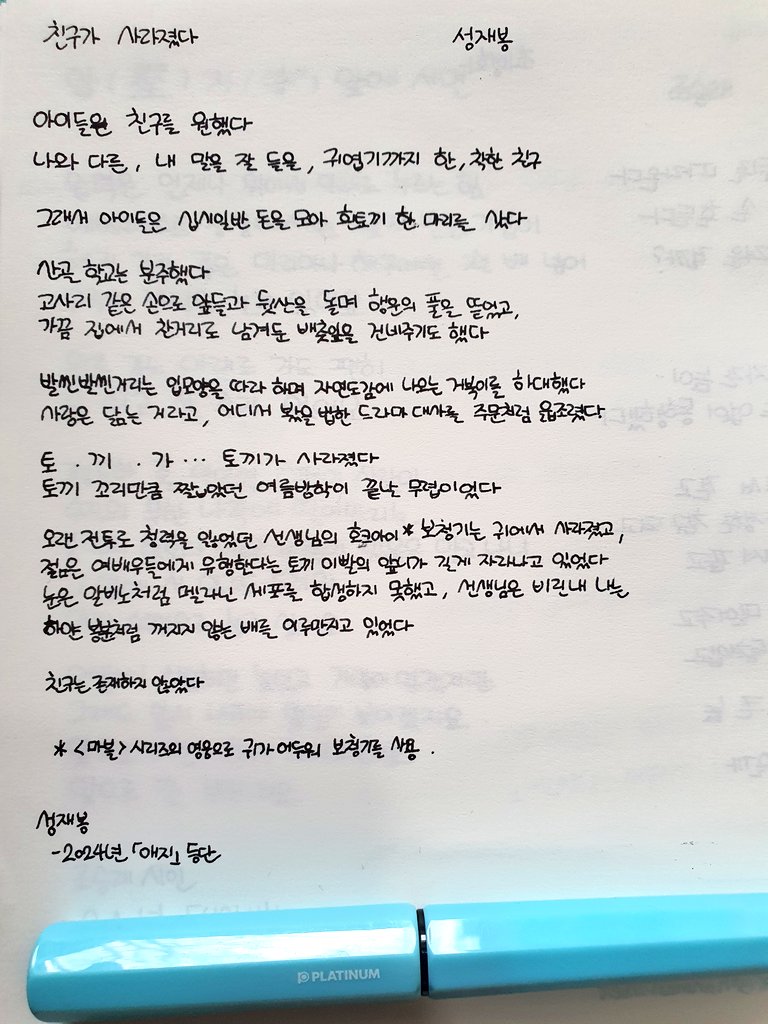 친구가 사라졌다 성재봉
아이들은 친구를 원했다
나와 다른, 내 말을 잘 들을, 귀엽기까지 한, 착한 친구
그래서 아이들은 십시일반 돈을 모아 흰토끼 한 마리를 샀다
산골 학교는 분주했다
고사리 같은 손으로 앞들과 뒷산을 돌며 행운의 풀을 뜯었고,
가끔 집에서 찬거리로 남겨둔 배춧잎을 건네주기도 했다
발씬발씬거리는 입모양을 따라 하며 자연도감에 나오는 거북이를 하대했다
사랑은 닮는 거라고, 어디서 봤을 법한 드라마 대사를 주문처럼 읊조렸다.
토 . 끼 . 가 ... 토끼가 사라졌다
토끼 꼬리만큼 짧았던 여름방학이 끝날 무렵이었다
오랜 전투로 청력을 잃었던 선생님의 호크아이* 보청기는 귀에서 사라졌고,
젊은 여배우들에게 유행한다는 토끼 이빨의 앞니가 길게 자라나고 있었다
눈은 알비노처럼 멜라닌 세포를 합성하지 못했고, 선생님은 비린내 나는
하얀 봉분처럼 꺼지지 않는 배를 어루만지고 있었다
친구는 존재하지 않았다
* <마블> 시리즈의 영웅으로 귀가 어두워 보청기를 사용.
성재봉
-2024년 「애지」 등단
PLATINUM